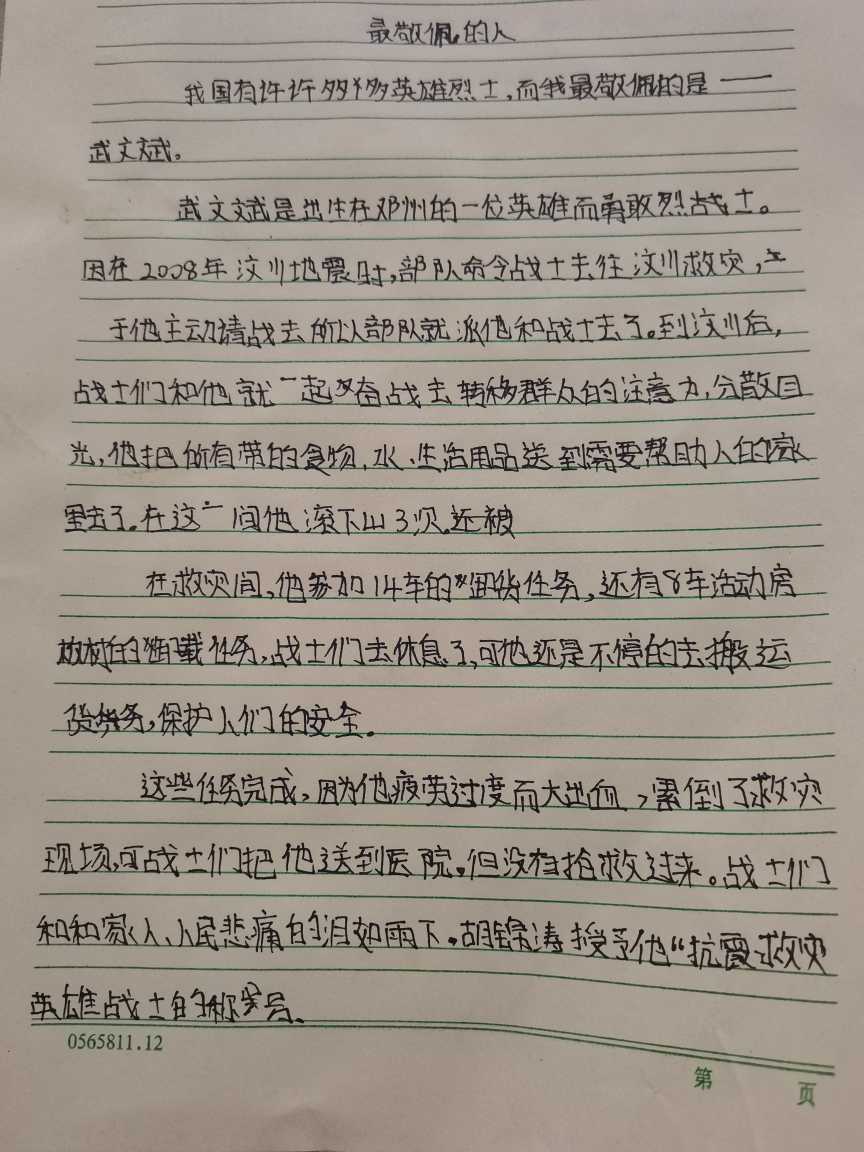 最敬佩的人
我国有许许多多英雄烈士,而我最敬佩的是——
武文斌。
武文斌是出生在邓州的一位英雄而勇敢烈战士。
因在2008年汶川地震时,部队命令战士去往汶川救灾,
于他主动请战去所以部队就派他和战士去了。到汶川后,
战士们和他就一起奋战去转移群众的注意力,分散目
光,他把所有带的食物,水、生活用品送到需要帮助人的家
里去了。在这一间他滚下山3次。还被
在救灾间,他参加14车的卸货任务,还有8车活动房
的卸载任务,战士们去休息了,可他还是不停的去搬运
货务,保护人们的安全。
这些任务完成,因为他疲劳过度而大出血,累倒了救灾
现场,可战士们把他送到医院。但没有抢救过来。战士们
和和家人、人民悲痛的泪如雨下。胡锦涛授予他“抗震救灾
英雄战士的称号、
0565811.12
第 页